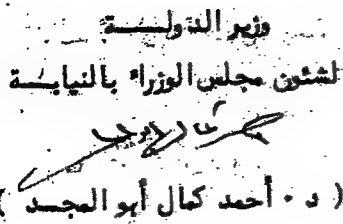 وزير الدولة
لشئون مجلس الوزراء بالنيابة
( د . أحمد كمال أبو المجد )